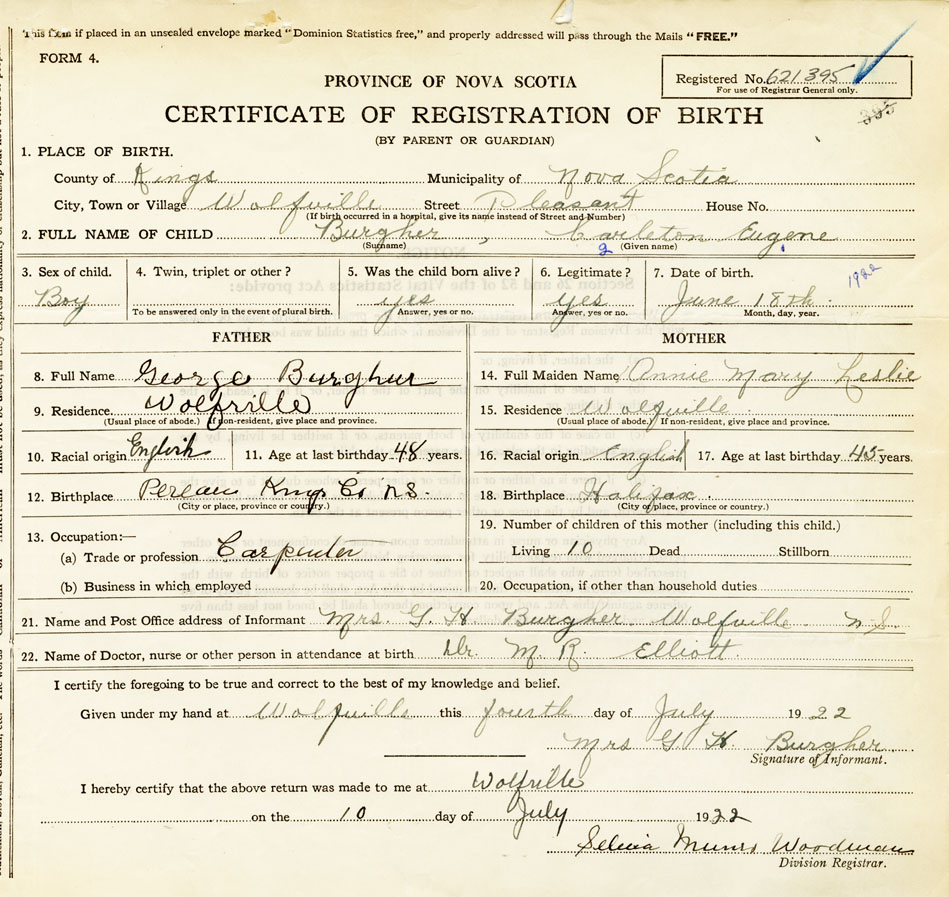 This form if placed in an unsealed envelope marked "Dominion Statistics free," and properly addressed will pass through the Mails "FREE."
FORM 4.
PROVINCE OF NOVA SCOTIA
Registered No. 621395
For use of Registrar General only.
CERTIFICATE OF REGISTRATION OF BIRTH
395
(BY PARENT OR GUARDIAN)
1. PLACE OF BIRTH.
County of Kings Municipality of Nova Scotia
City, Town or Village Wolfville Street Pleasant House No.
(If birth occurred in a hospital, give its name instead of Street and Number)
2. FULL NAME OF CHILD Burgher, Carleton Eugene
(Surname) (Given name)
3. Sex of child. 4. Twin, triplet or other? 5. Was the child born alive? 6. Legitimate? 7. Date of birth. 1922
Boy yes yes June 18th.
To be answered only in the event of plural birth. Answer, yes or no. Answer, yes or no. Month, day, year.
FATHER
8. Full Name George Burgher
9. Residence. Wolfville
(Usual place of abode.) If non-resident, give place and province.
10. Racial origin English 11. Age at last birthday 48 years.
12. Birthplace Pereau Kings Co N.S.
(City or place, province or country.)
13. Occupation:—
(a) Trade or profession Carpenter
(b) Business in which employed
MOTHER
14. Full Maiden Name Annie Mary Leslie
15. Residence Wolfville
(Usual place of abode.) If non-resident, give place and province.
16. Racial origin English 17. Age at last birthday 45 years.
18. Birthplace Halifax.
(City or place, province or country.)
19. Number of children of this mother (including this child.)
Living 10 Dead Stillborn
20. Occupation, if other than household duties
21. Name and Post Office address of Informant Mrs. G. H. Burgher. Wolfville. N.S.
22. Name of Doctor, nurse or other person in attendance at birth Dr. M. R. Elliott.
I certify the foregoing to be true and correct to the best of my knowledge and belief.
Given under my hand at Wolfville this fourth day of July 1922
Mrs G. H. Burgher
Signature of Informant.
I hereby certify that the above return was made to me at Wolfville
on the 10 day of July 1922
Munro Woodman
Division Registrar.